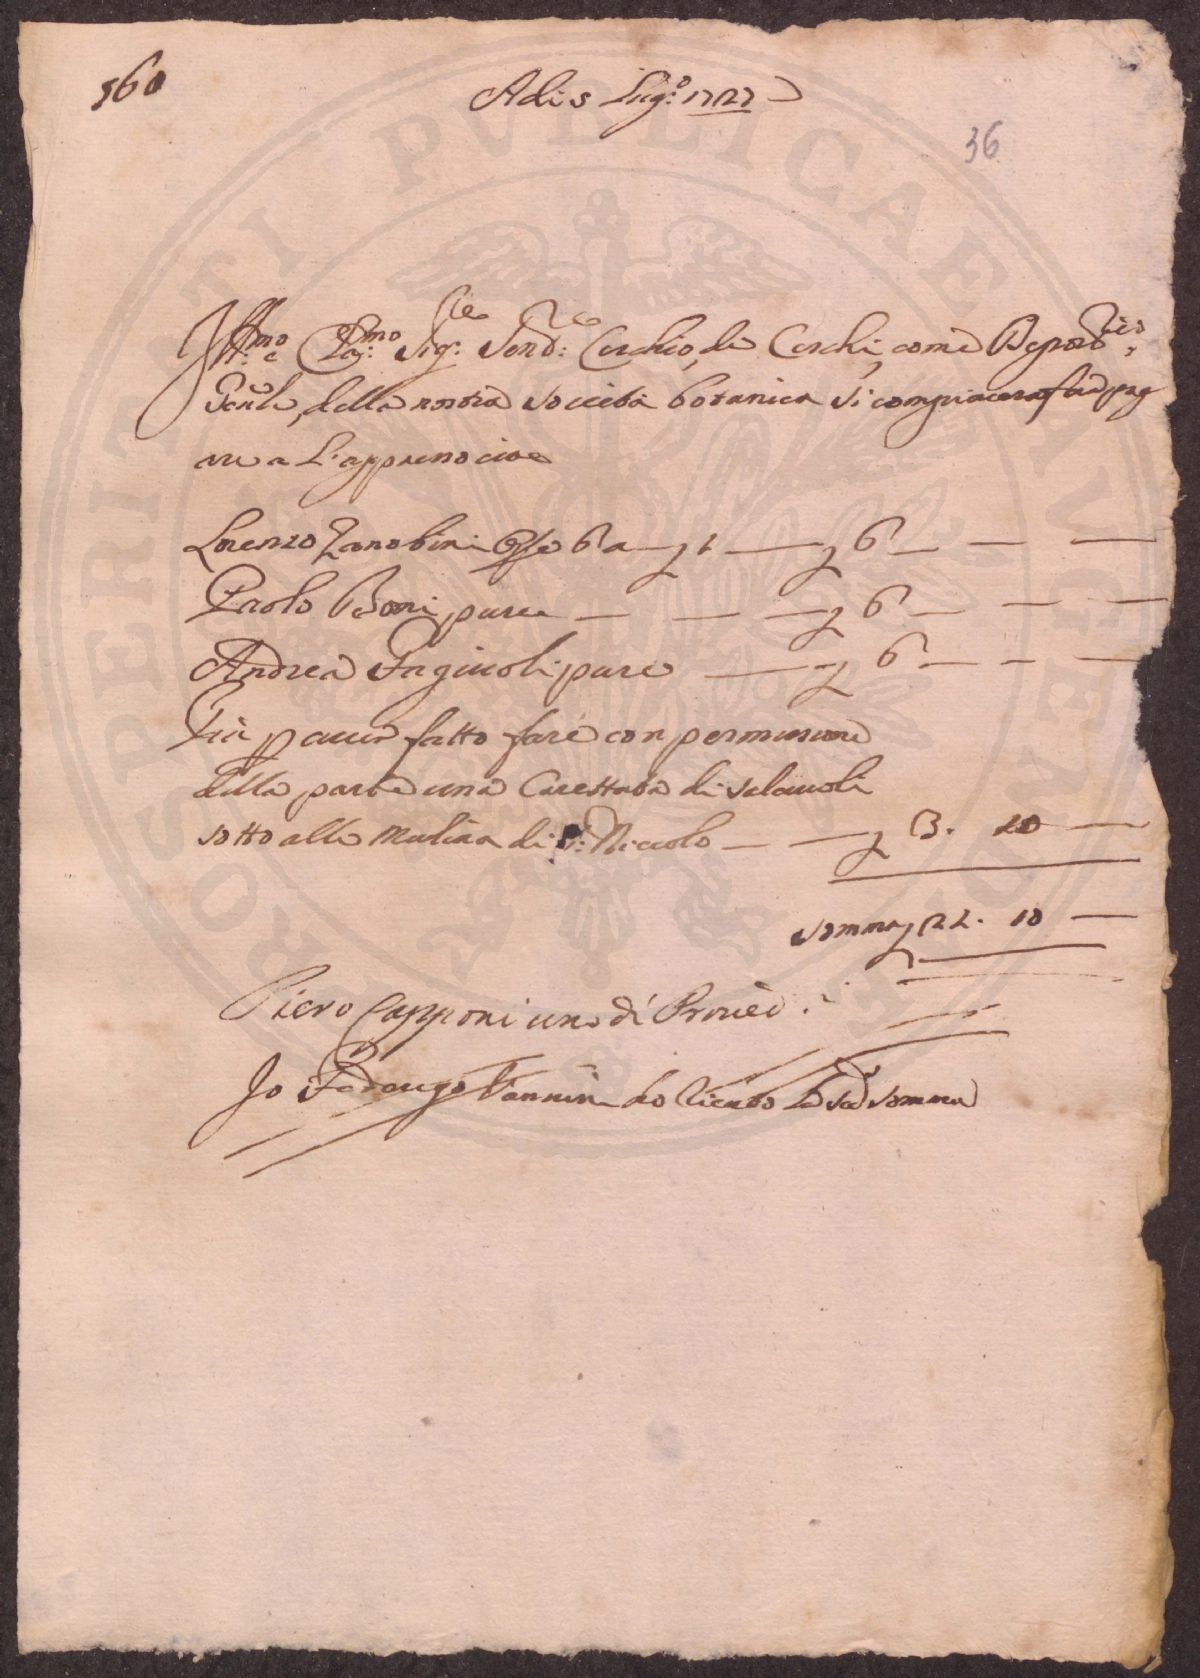 560
Adi 5 Lug:o 1727
36
Ill:mo e Cla:mo Sig:re Send:re Cerchio, de Cerchi, come Depos:rio
Genle, della nostra società botanica si compiacerà far pag
are a L'appreso cioe
Lorenzo Zanobini Opre 6 a £ 1 — £ 6 — — —
Paolo Boni pure — — — £ 6 — — —
Andrea Fagiuoli pure — £ 6 — — —
Più p auer fatto fare con permissione
della parte una Carettata di
sotto alle mulina di S: Niccolo — — £ 3. 10 —
Somma £ 22. 10 —
Piero Capponi uno di Proued:ri
Io Vannini ho riceuto la sud somma
SOSPERITI PVBLICAE